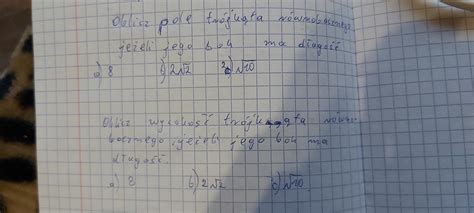 Oblicz pole trójkąta równobocznego
jeżeli jego bok ma długość
a) 8 b) 2√2 c) √10
Oblicz wysokość trójkąta równo-
bocznego, jeżeli jego bok ma
długość.
a) 8 b) 2√2 c) √10